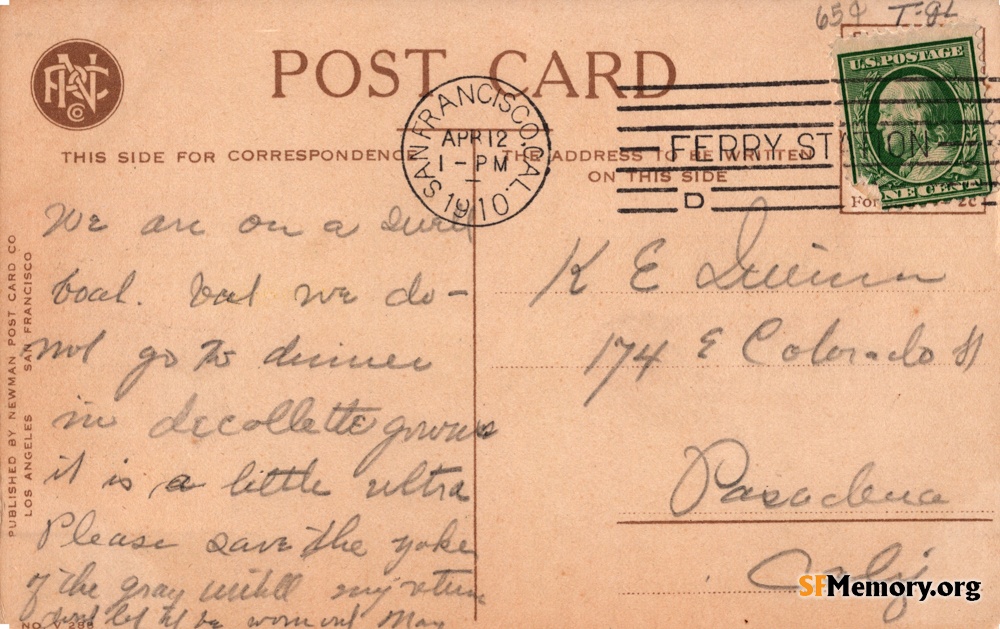 65¢ T-8L
POST CARD
THIS SIDE FOR CORRESPONDENCE
THE ADDRESS TO BE WRITTEN
ON THIS SIDE
U.S. POSTAGE
NE CENT
For 2c
SAN FRANCISCO, CAL.
APR 12
1 - PM
1910
FERRY STATION
D
We are on a
boat. but we do-
not go to dinner
in decollette gowns
it is a little ultra
Please save the yoke
of the gray untill my return
dont let it be worn out May
K E
174 E Colorado St
Pasadena
Calif
PUBLISHED BY NEWMAN POST CARD CO.
LOS ANGELES SAN FRANCISCO
NO. V 288
SFMemory.org